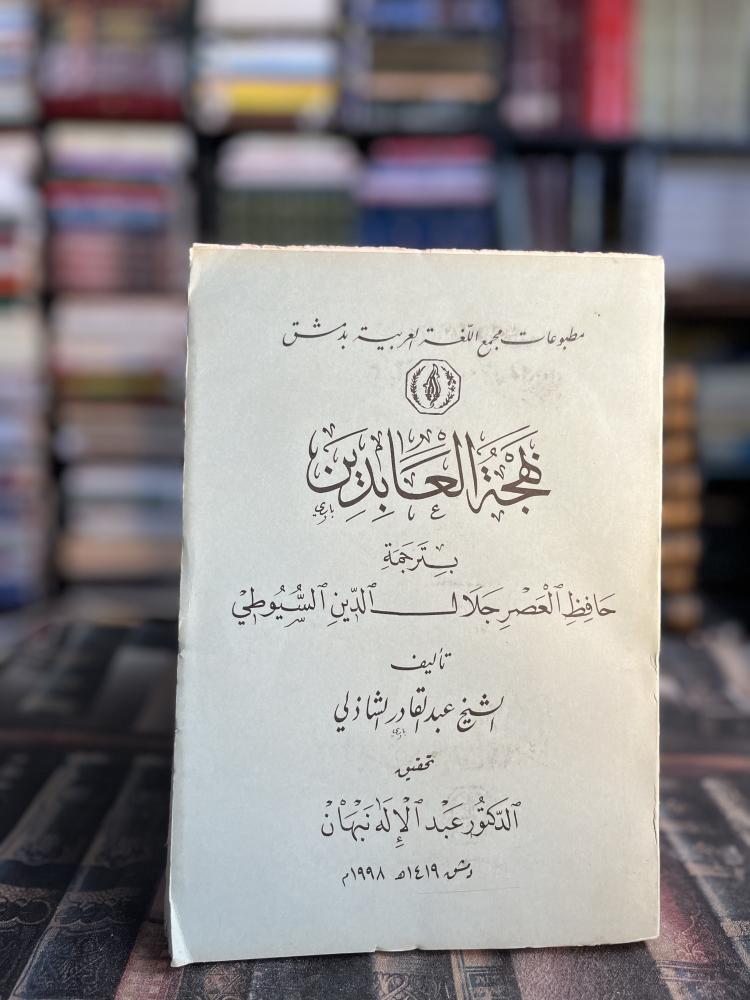 مطبوعات مجمع اللّغة العربية بدمشق
بَهْجَةُ العَابِدِيَن
بِتَرجَمَةِ
حَافِظِ ٱلْعَصْرِ جَلَالِ ٱلدّينِ ٱلسُّيُوطِيّ
تأليف
الشيخ عبدالقادر الشاذلي
تحقيق
ٱلدّكتُور عَبْد ٱلْإِلٰه نَبْهَانْ
دمشق ١٤١٩هـ ١٩٩٨م